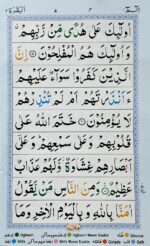 البقرة ٢ ٤ الٓمّٓ ١
اُولٰٓئِكَ عَلٰى هُدًى مِّنْ رَّبِّهِمْ
وَاُولٰٓئِكَ هُمُ الْمُفْلِحُوْنَ ۝ اِنَّ
الَّذِيْنَ كَفَرُوْا سَوَآءٌ عَلَيْهِمْ
ءَاَنْذَرْتَهُمْ اَمْ لَمْ تُنْذِرْهُمْ
لَا يُؤْمِنُوْنَ ۝ خَتَمَ اللّٰهُ عَلٰى
قُلُوْبِهِمْ وَعَلٰى سَمْعِهِمْ وَعَلٰٓى
اَبْصَارِهِمْ غِشَاوَةٌ وَّلَهُمْ عَذَابٌ
عَظِيْمٌ ۝ وَمِنَ النَّاسِ مَنْ يَّقُوْلُ
اٰمَنَّا بِاللّٰهِ وَبِالْيَوْمِ الْاٰخِرِ وَمَا